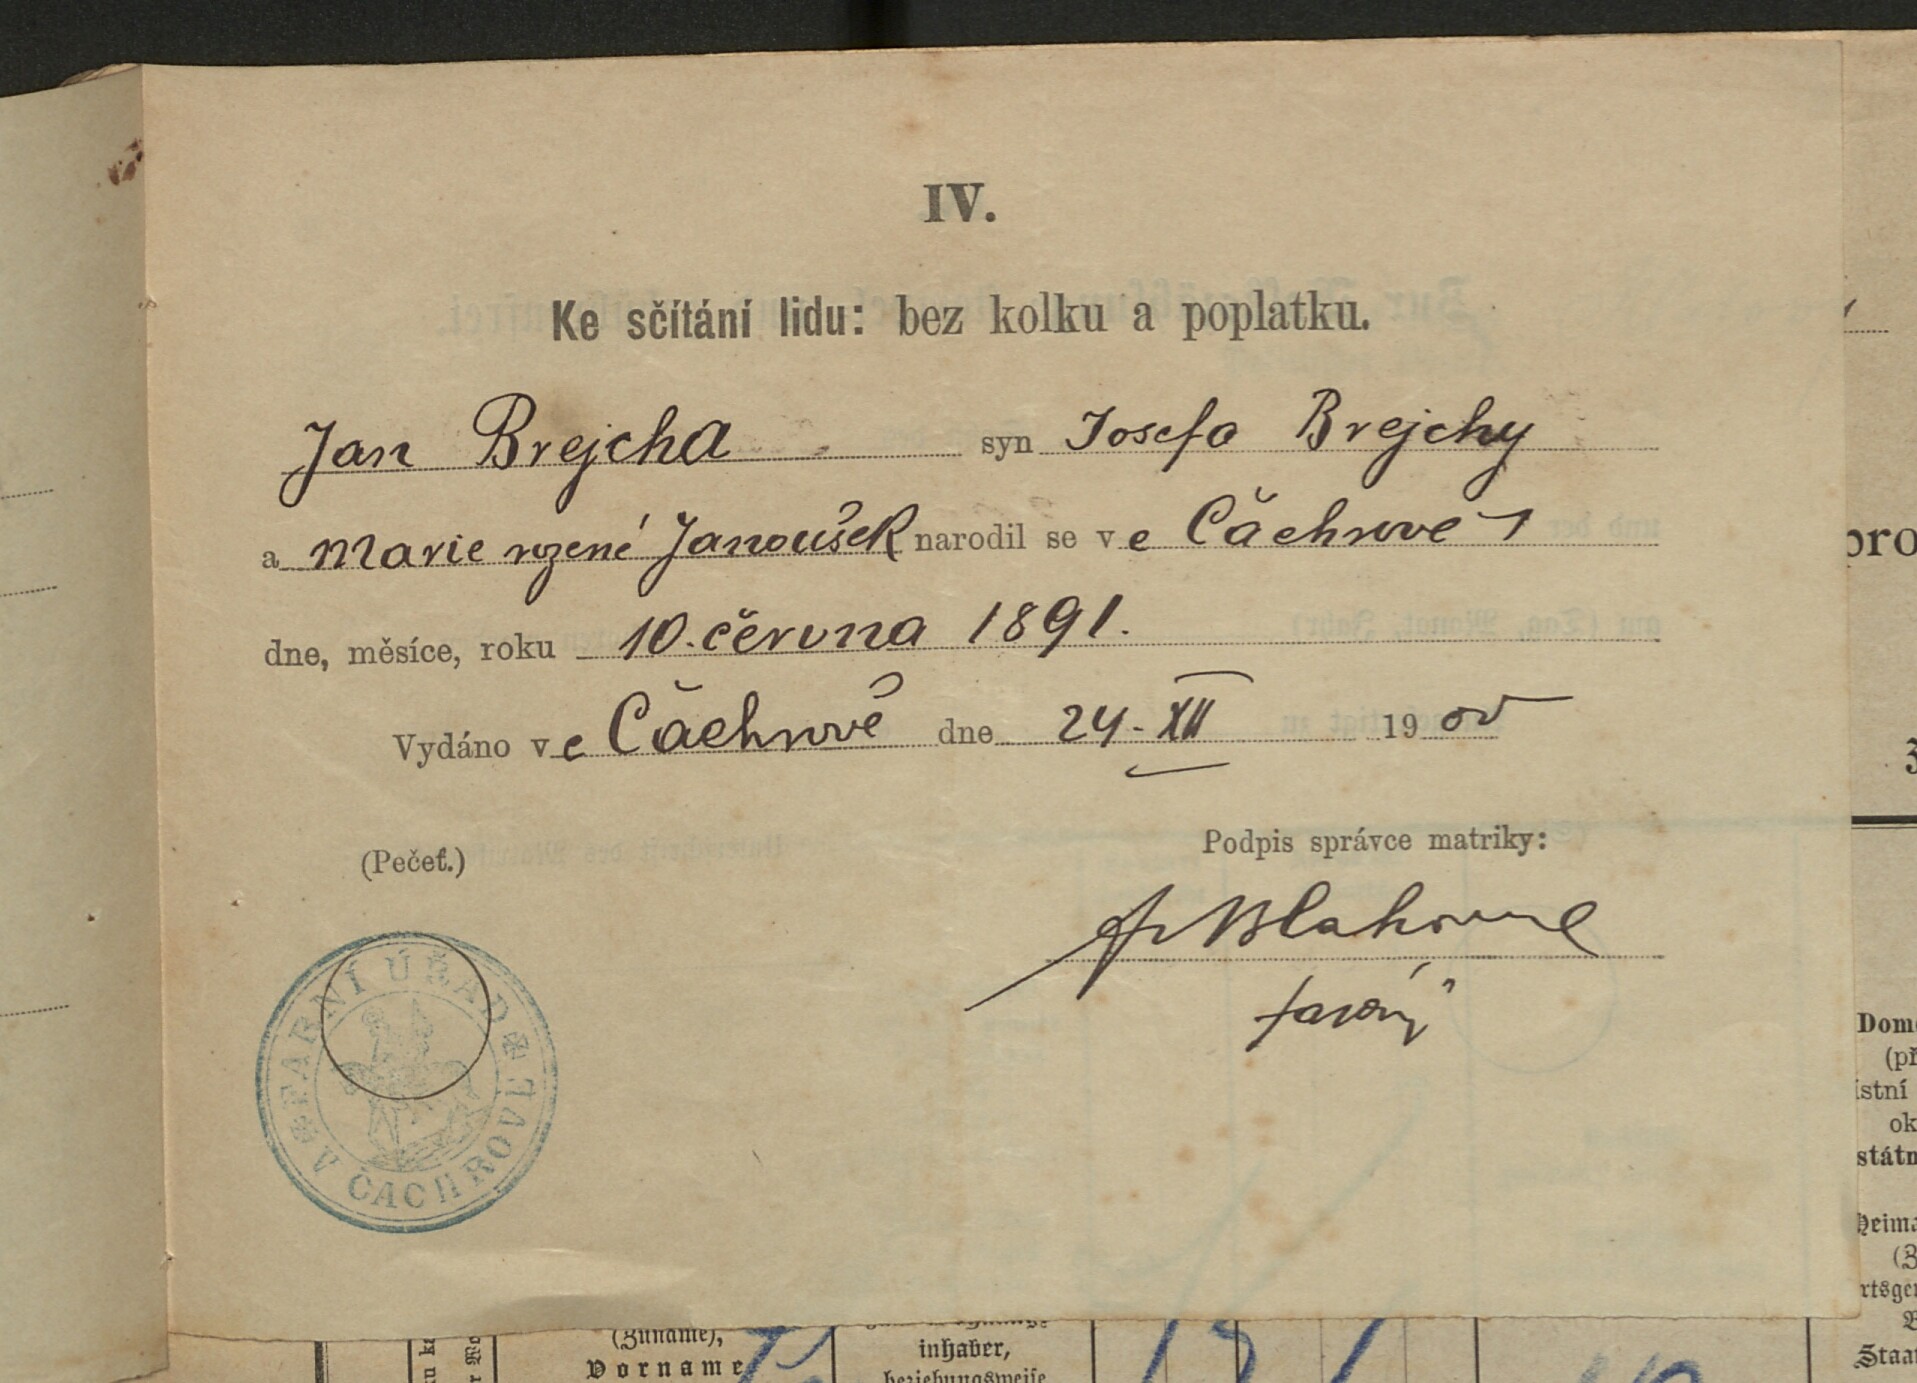 IV.
Ke sčítání lidu: bez kolku a poplatku.
Jan Brejcha syn Josefa Brejchy
a Marie rozené Janoušek narodil se v e Čachrově
dne, měsíce, roku 10. června 1891.
Vydáno v e Čachrově dne 24. XII 1900
Podpis správce matriky:
(Pečeť.)
farář
FARNÍ ÚŘAD
V ČACHROVĚ
pro
Dom
(př
ístní
ok
státn
Heima
(Z
rtsge
Staa
(Zuname),
Vorname
inhaber,
beziehungsweise